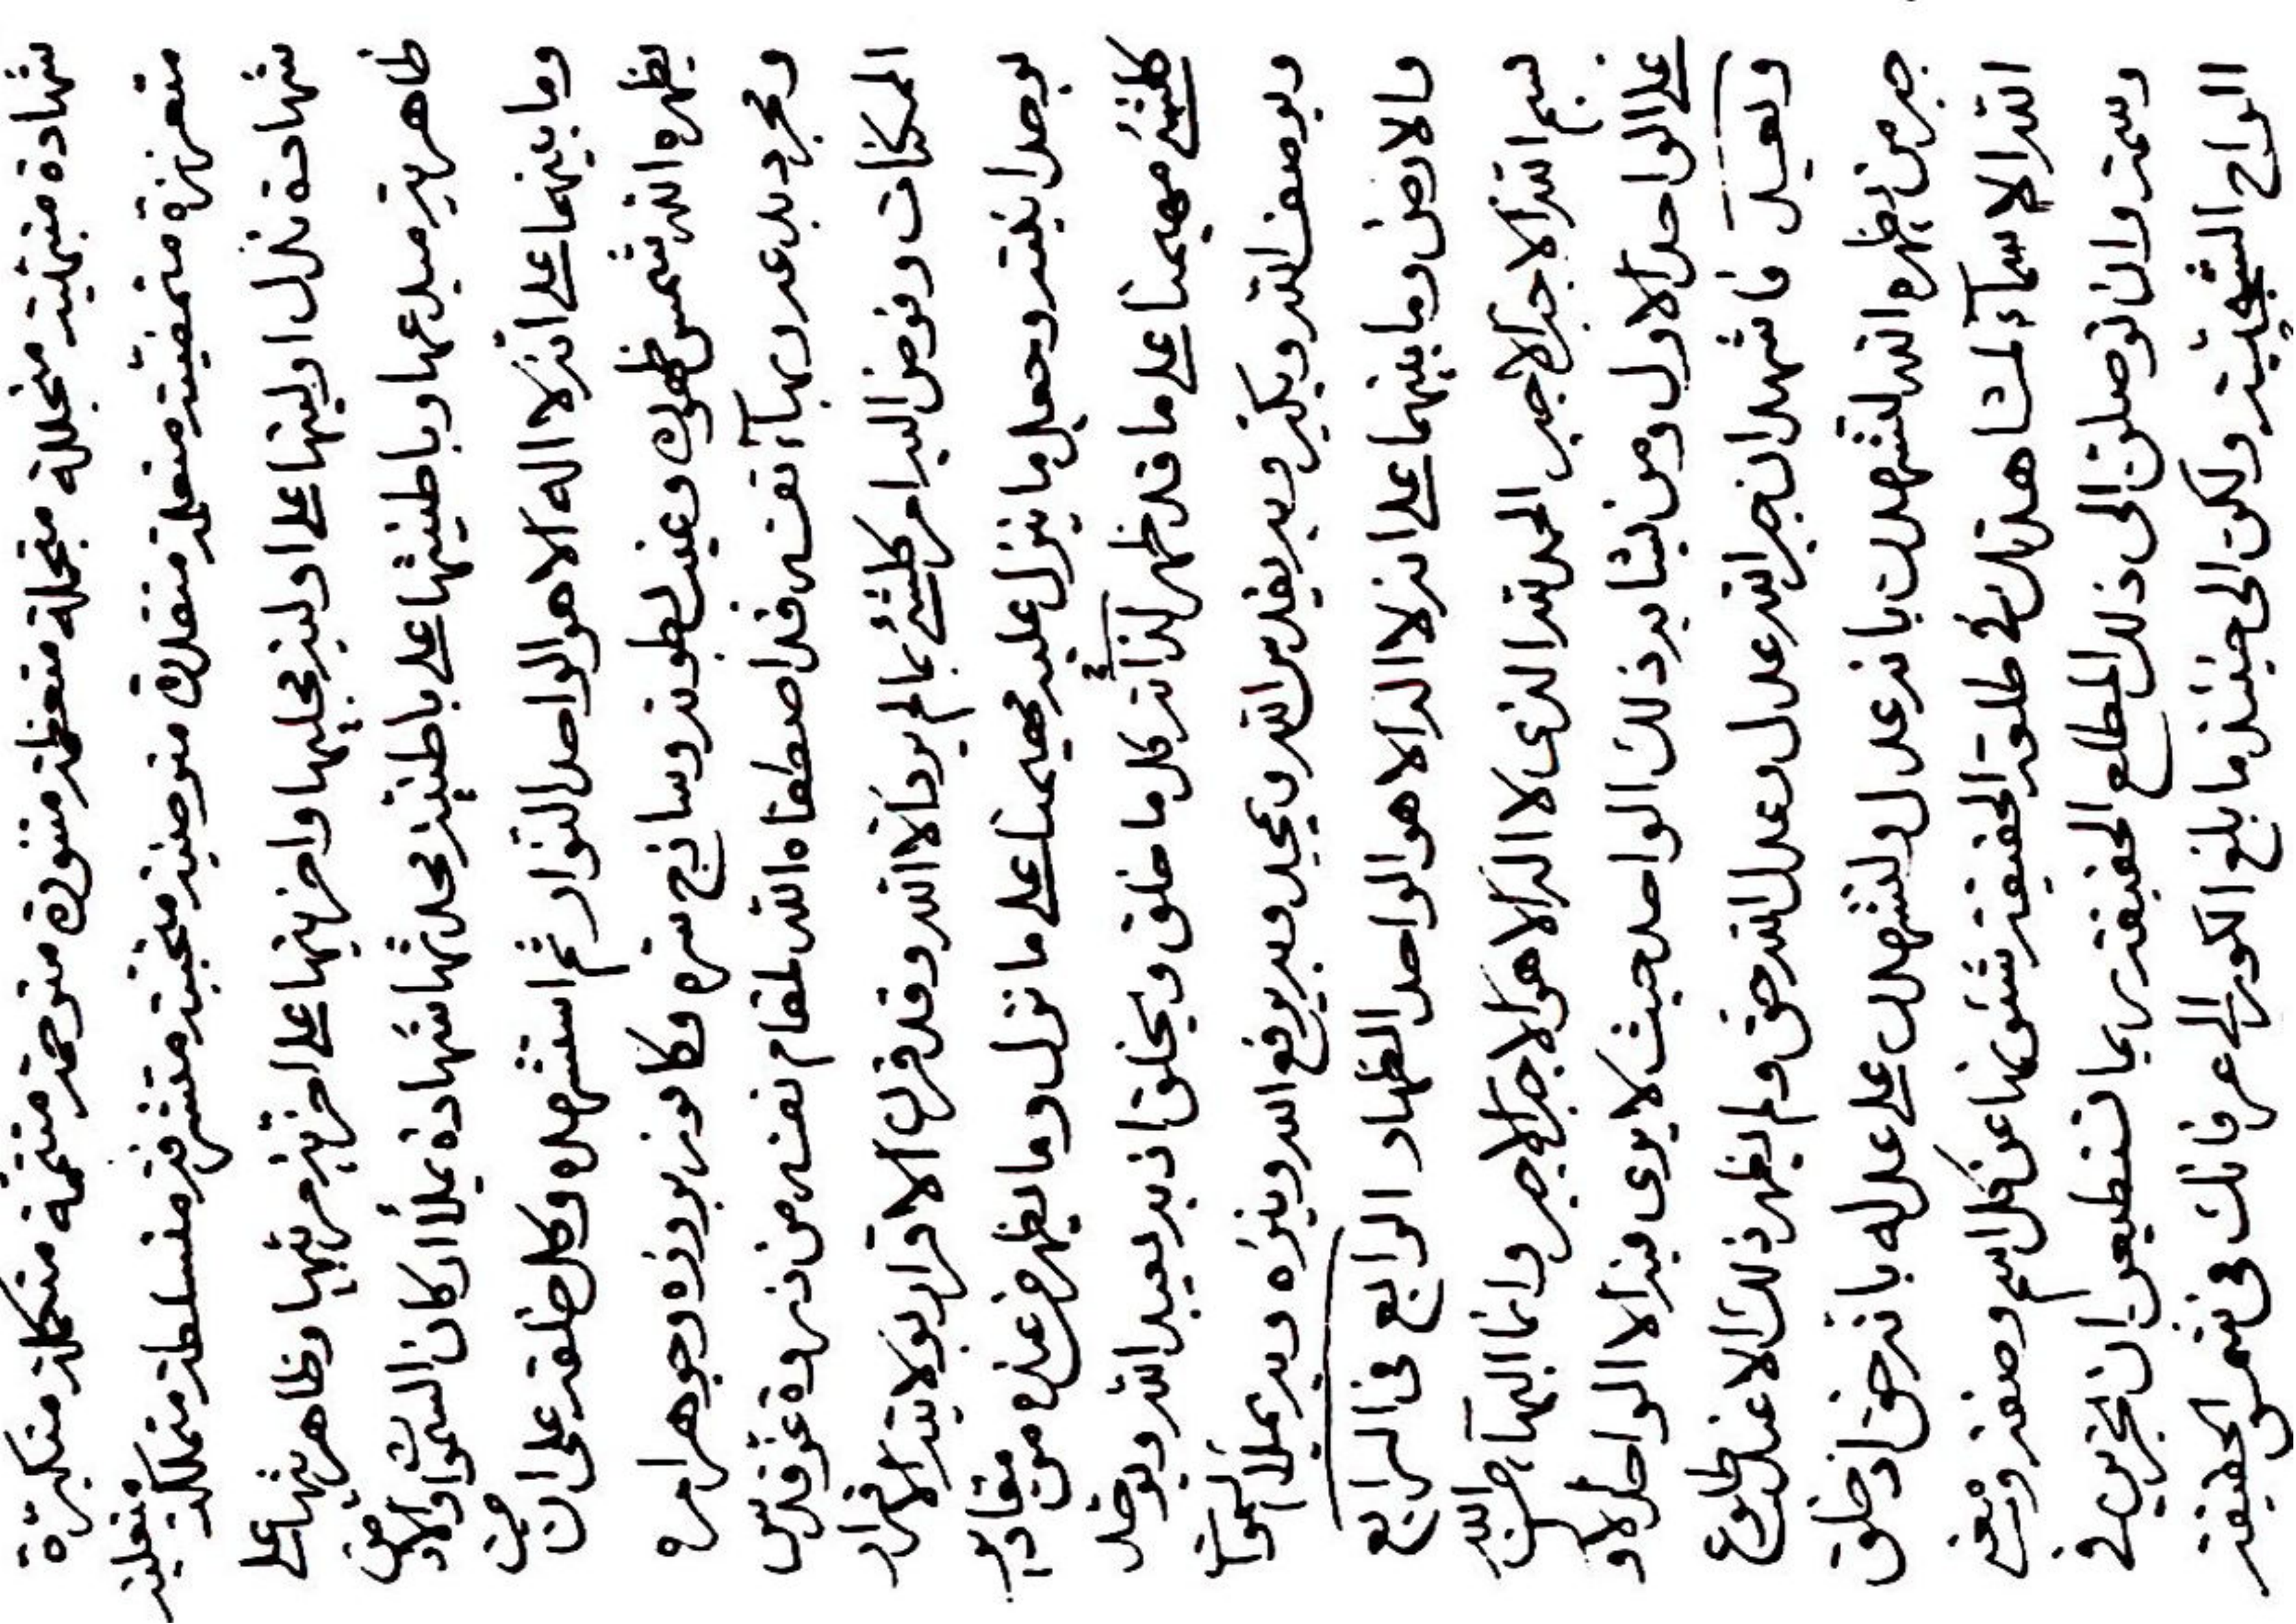 شهادة متبهية متجللة متجملة متعظمة متنورة متوحمة متتممة متكملة متكبرة
متعززة متمضية متعلمة متقدرة متوضية متحببة متشرفة متسلطة متملكة متعلية
شهادة تدل اوليتها على اولية مجليها واخريتها على اخرية مريثها وظاهريتها على
ظاهرية مبدعها وباطنيتها على باطنية محدثها شهادة يملأ اركان السموات والارض
وما بينهما على انه لا اله الا هو الواحد النوار ثم استشهده وكل خلقه على ان من
يظهره الله شمس ظهوره وغيب بطونه وساذج سره وكافور بروزه وجوهر امره
ومجرد بدعه وبهآء نفسه قد اصطفاه الله لمقام نفسه من ذروة عز قدس
الممكنات وفوض اليه امر كلشئ بما لم يرد الا الله وقد قرن الاقرار بولايته الاقرار
بوحدانيته وجعل ما ينزل عليه مهيمنا على ما نزل وما يظهر من عنده من مقادير
كلشئ مهيمنا على ما قد ظهر لذاته كل ما خلق ويخلق اذ به يعبد الله ويوحد
ويوصف الله ويكبر وبه يقدس الله ويمجد وبه يرفع الله وينزه وبه يملأ السموات
والارض وما بينهما على انه لا اله الا هو الواحد الظهار الرابع في الرابع
بسم الله الاجبر الاجبر الحمد لله الذي لا اله الا هو الاجبر الاجبر وانما البهآء من الله
على الواحد الاول ومن يشابه ذلك الواحد حيث لا يرى فيه الا الواحد الاول
وبعد فاشهد ان جبر الله عدل وعدل الله حق ولم يظهر ذلك الا عند طلوع
جبر من يظهره الله لتشهدن بانه عدل ولتشهدن على عدله بانه حق اذ خلق
الله الاسماء لمشاهدتك في طلعة الحقيقة شئونها عن كل اسم وصفة ونعت
وسمة وان توصلن الى ذلك المطلع الحقيقة بما تستطيعن ان تجرين في
الواح الشجية ولكن الى حينئذ ما بلغ الكور الى عرفانك في شمس الحقيقة